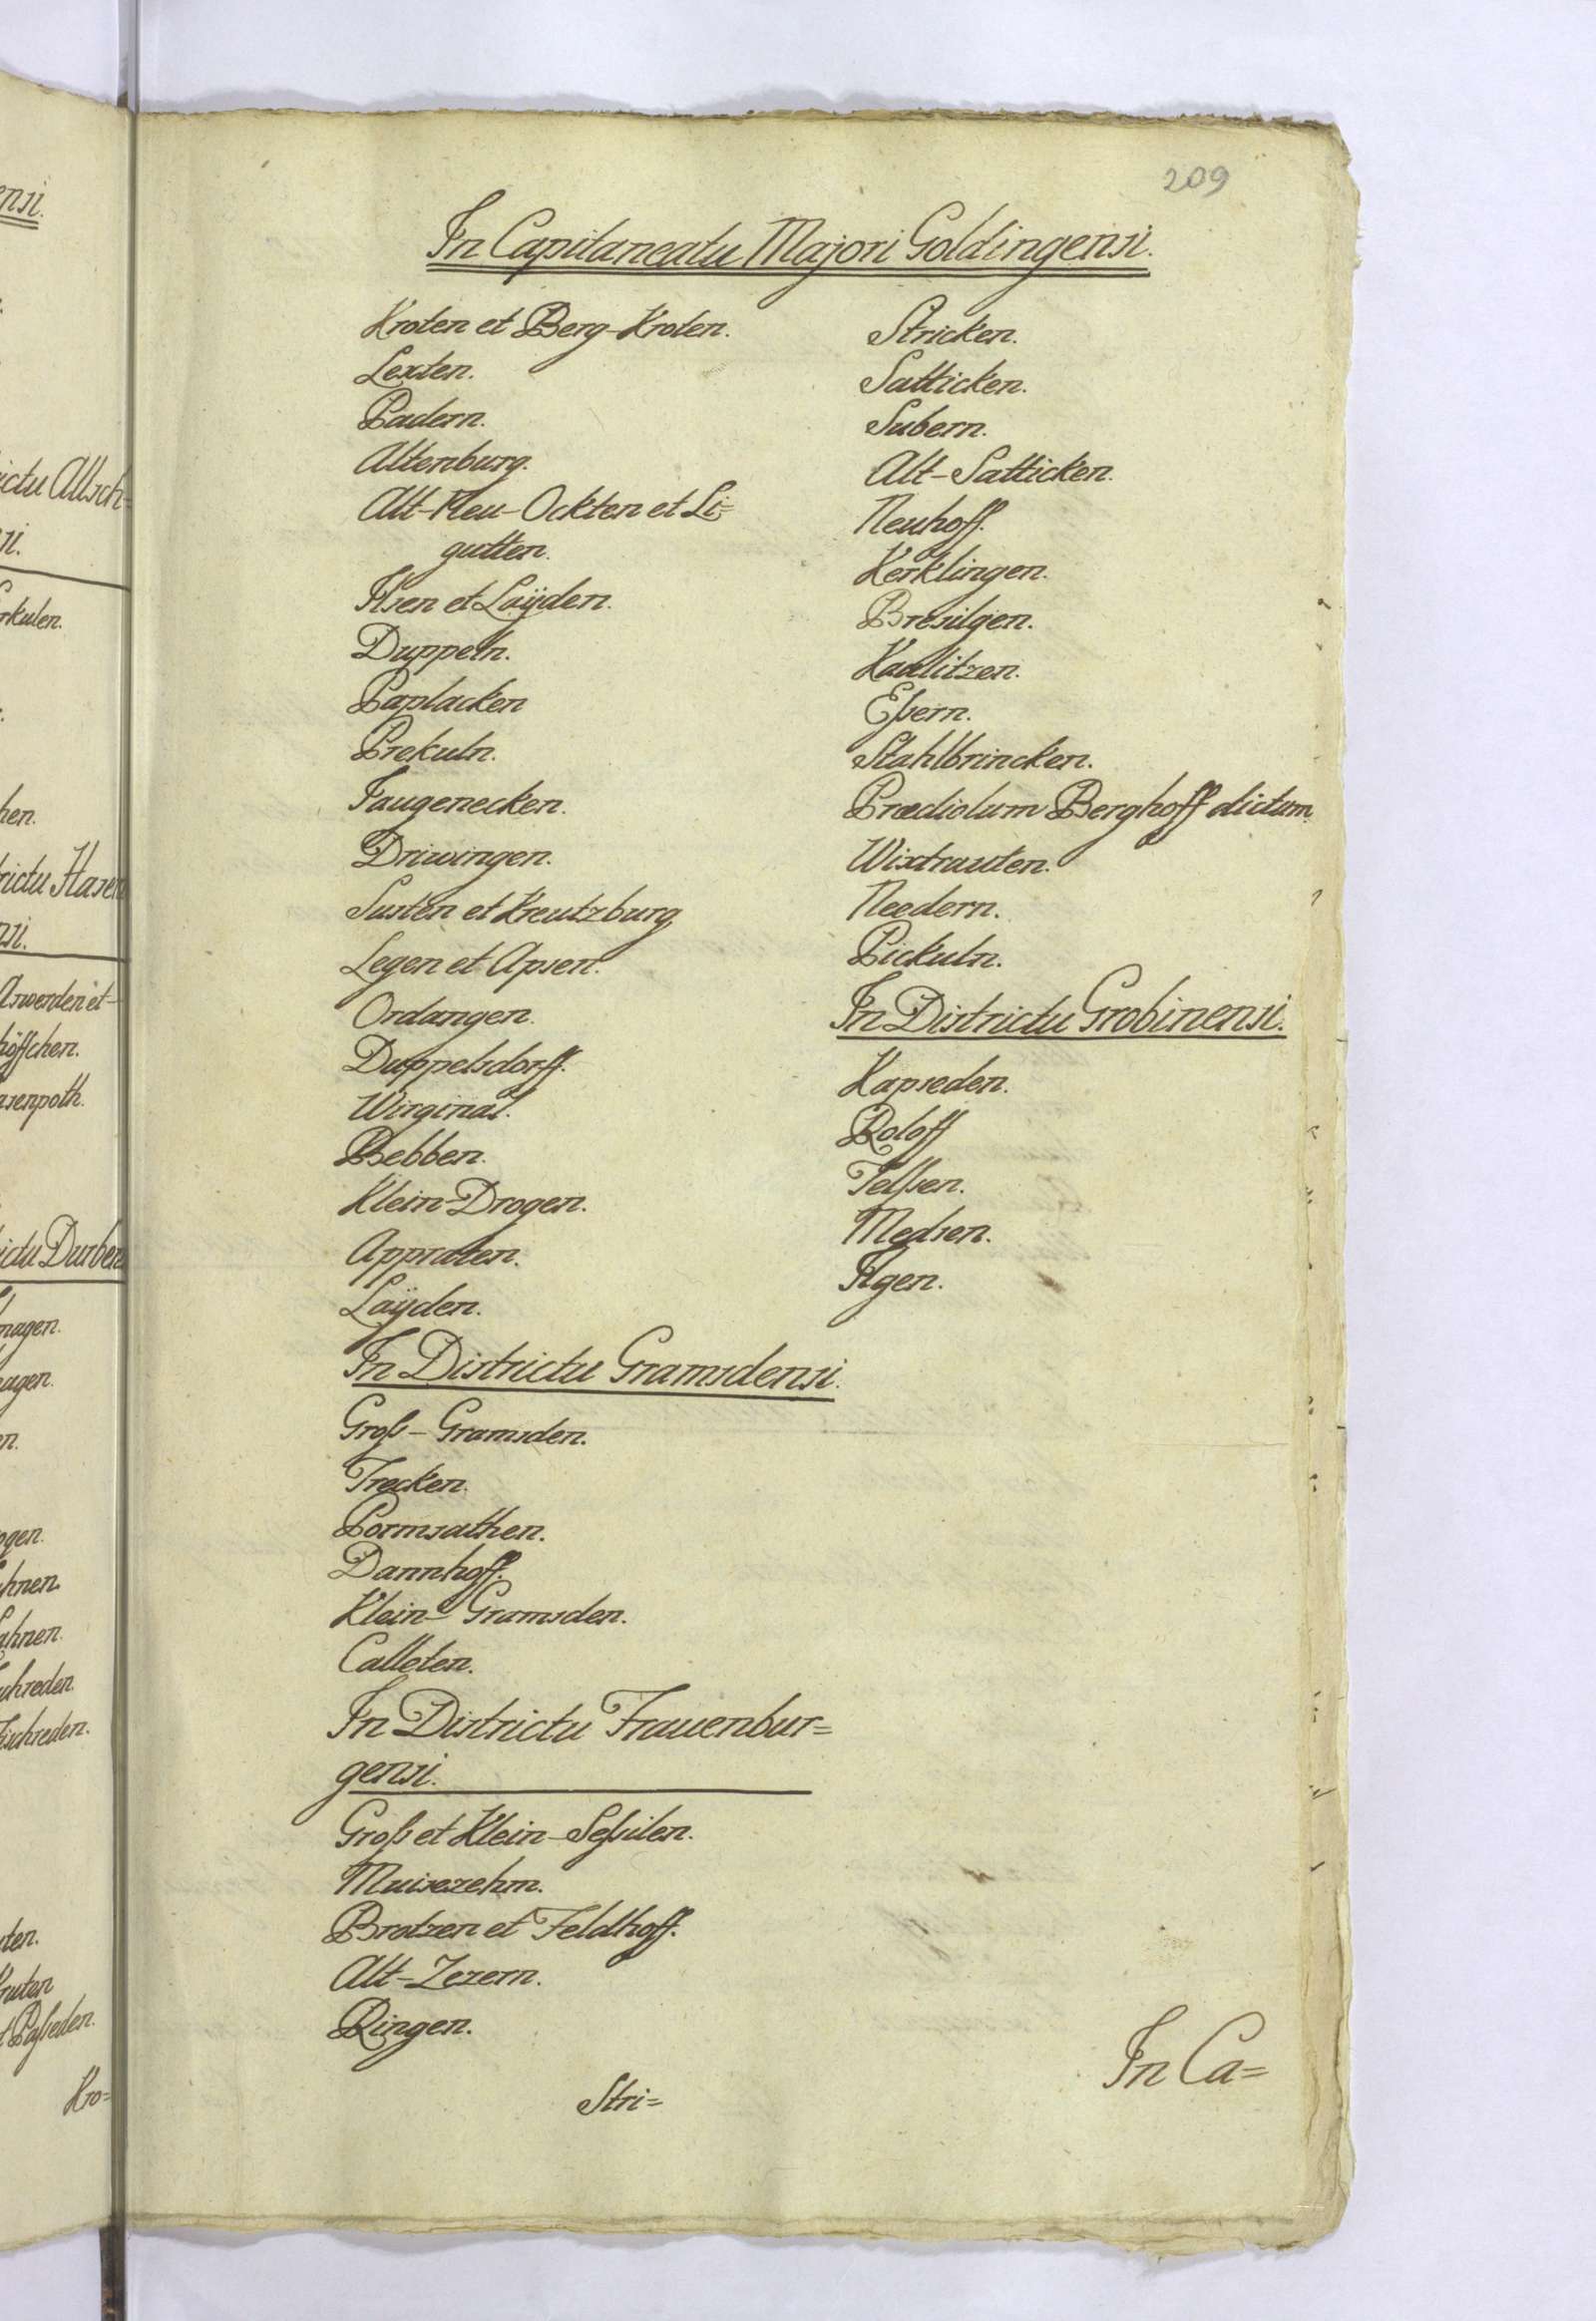 209
In Capitaneatu Majori Goldingensi.
Kroten et Berg-Kroten.
Lexten.
Padern.
Altenburg.
Alt-Neu-Ockten et Li=
gutten.
Ilsen et Laÿden.
Duppeln.
Paplacken
Prekuln.
Taugenecken.
Driwingen.
Susten et Kreutzburg
Legen et Apsen.
Ordangen.
Duppelsdorff.
Wirginal.
Bebben.
Klein-Drogen.
Appraten.
Laÿden.
In Districtu Gramsdensi.
Groß-Gramsden.
Trecken.
Pormsathen.
Dannhoff.
Klein-Gramsden.
Calleten.
In Districtu Frauenbur=
gensi.
Groß et Klein-Seßilen.
Muisezehm.
Brotzen et Feldhoff.
Alt-Zezern.
Ringen.
Stri=
Stricken.
Satticken.
Subern.
Alt-Satticken.
Neuhoff.
Kerklingen.
Bresilgen.
Kaulitzen.
Eßern.
Stahlbrincken.
Prædiolum Berghoff dictum.
Wixtrauten.
Needern.
Pickuln.
In Districtu Grobinensi.
Kapseden.
Roloff
Telßen.
Medsen.
Ilgen.
In Ca=